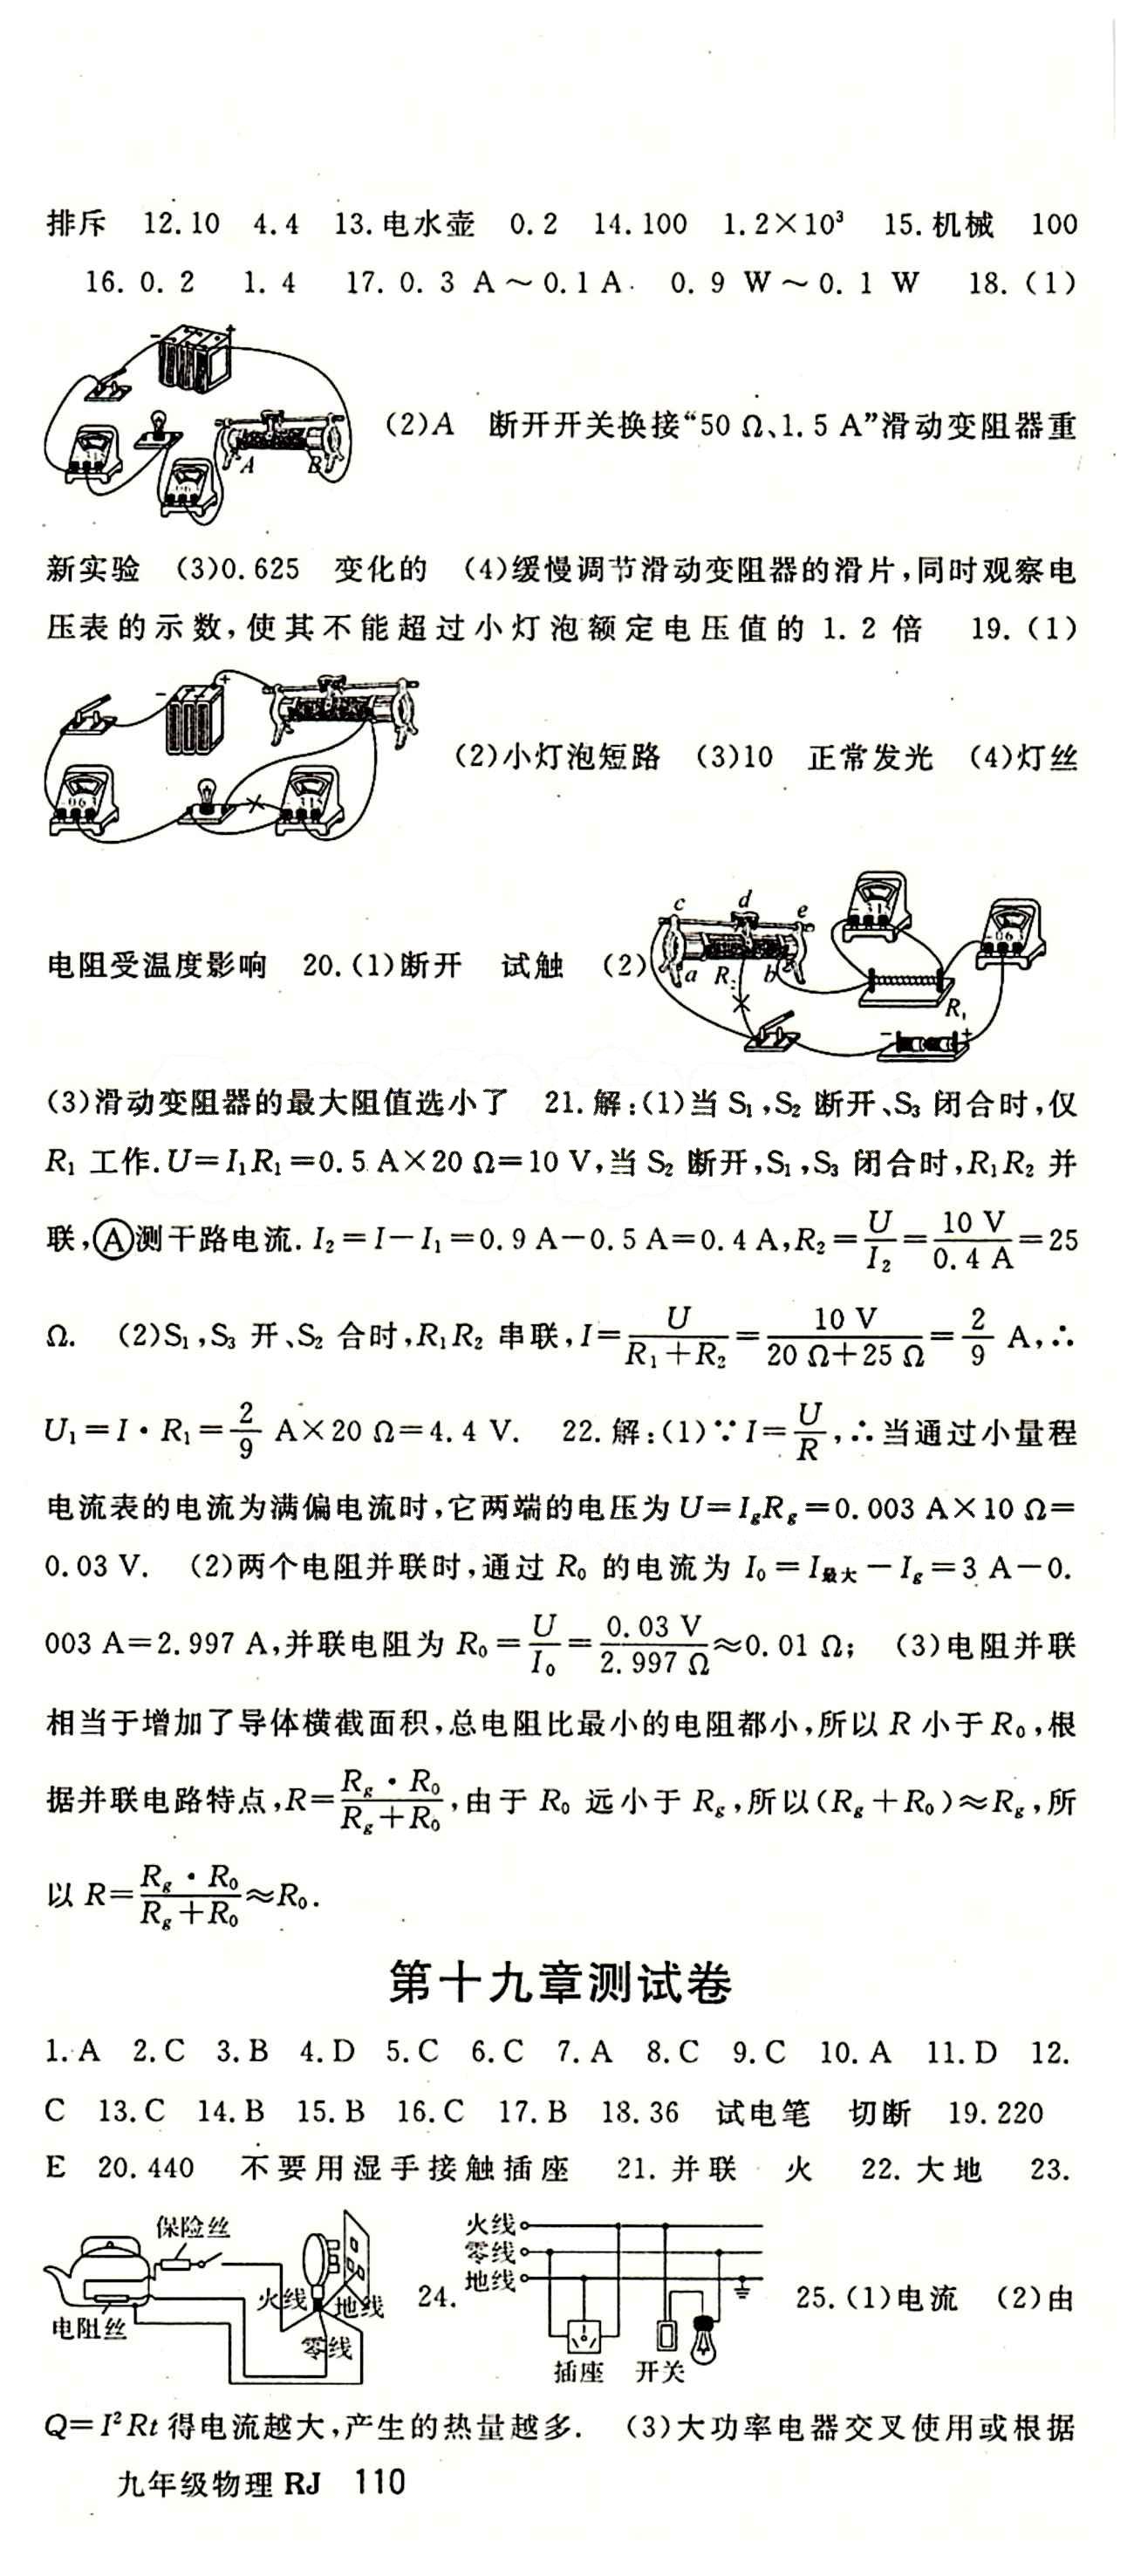 排斥 12.10 4.4 13.电水壶 0.2 14.100 1.2×10³ 15.机械 100
16.0.2 1.4 17.0.3 A～0.1 A 0.9 W～0.1 W 18.(1)
- +
A B
(2)A 断开开关换接“50 Ω、1.5 A”滑动变阻器重
新实验 (3)0.625 变化的 (4)缓慢调节滑动变阻器的滑片,同时观察电
压表的示数,使其不能超过小灯泡额定电压值的 1.2 倍 19.(1)
- +
(2)小灯泡短路 (3)10 正常发光 (4)灯丝
电阻受温度影响 20.(1)断开 试触 (2)
c d e
a R₂ b
R₁
- +
(3)滑动变阻器的最大阻值选小了 21.解:(1)当 S₁,S₂ 断开、S₃ 闭合时,仅
R₁ 工作.U=I₁R₁=0.5 A×20 Ω=10 V,当 S₂ 断开,S₁,S₃ 闭合时,R₁R₂ 并
联,Ⓐ测干路电流.I₂=I-I₁=0.9 A-0.5 A=0.4 A,R₂=U/I₂=10 V/0.4 A=25
Ω. (2)S₁,S₃ 开、S₂ 合时,R₁R₂ 串联,I=U/(R₁+R₂)=10 V/(20 Ω+25 Ω)=2/9 A,∴
U₁=I·R₁=2/9 A×20 Ω=4.4 V. 22.解:(1)∵I=U/R,∴当通过小量程
电流表的电流为满偏电流时,它两端的电压为 U=IgRg=0.003 A×10 Ω=
0.03 V. (2)两个电阻并联时,通过 R₀ 的电流为 I₀=I最大-Ig=3 A-0.
003 A=2.997 A,并联电阻为 R₀=U/I₀=0.03 V/2.997 Ω≈0.01 Ω; (3)电阻并联
相当于增加了导体横截面积,总电阻比最小的电阻都小,所以 R 小于 R₀,根
据并联电路特点,R=Rg·R₀/(Rg+R₀),由于 R₀ 远小于 Rg,所以(Rg+R₀)≈Rg,所
以 R=Rg·R₀/(Rg+R₀)≈R₀.
第十九章测试卷
1.A 2.C 3.B 4.D 5.C 6.C 7.A 8.C 9.C 10.A 11.D 12.
C 13.C 14.B 15.B 16.C 17.B 18.36 试电笔 切断 19.220
E 20.440 不要用湿手接触插座 21.并联 火 22.大地 23.
保险丝
火线 地线
电阻丝
零线
24.
火线
零线
地线
插座 开关
25.(1)电流 (2)由
Q=I²Rt 得电流越大,产生的热量越多. (3)大功率电器交叉使用或根据
九年级物理 RJ 110